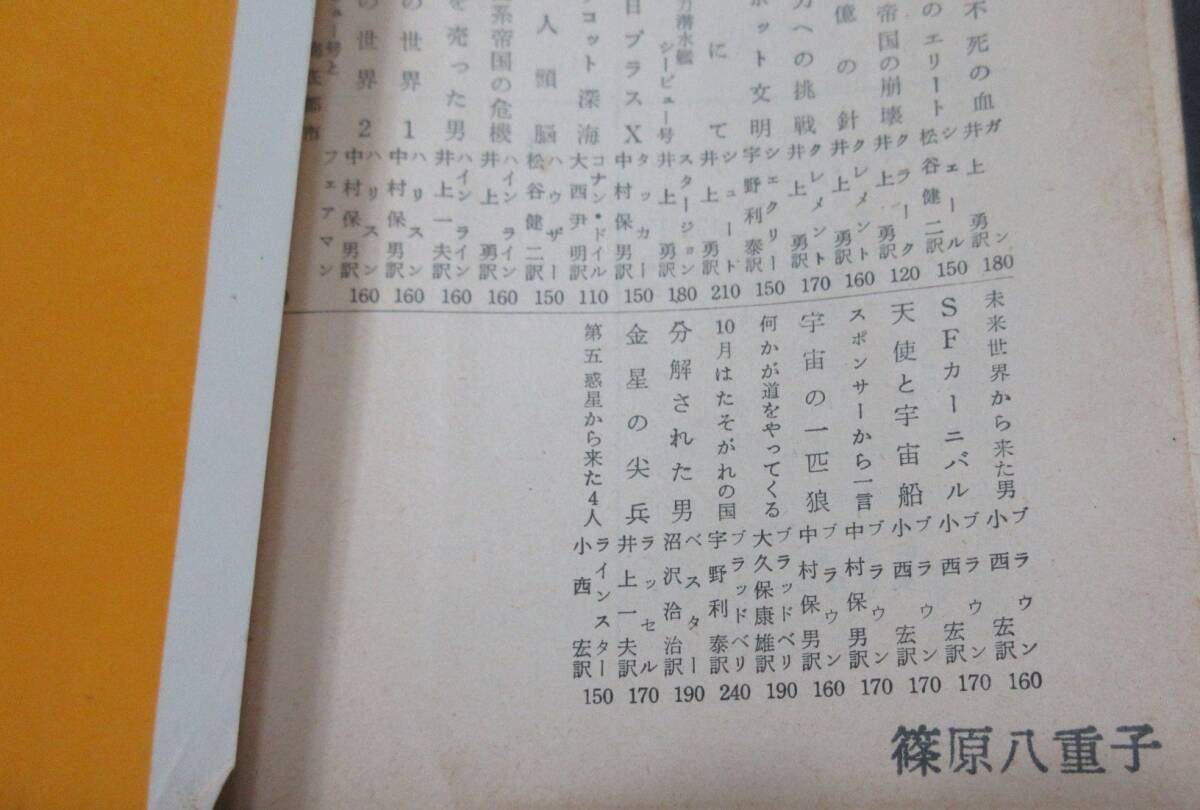 不死の血 ガン 井上勇訳 180
のエリート シェール 松谷健二訳 150
帝国の崩壊 クラーク 井上勇訳 120
億の針 クレメント 井上勇訳 160
力への挑戦 クレメント 井上勇訳 170
ボット文明 シェクリー 宇野利泰訳 150
にて シュート 井上勇訳 210
力潜水艦シービュー号 スタージョン 井上勇訳 180
日プラスX タッカー 中村保男訳 150
コット深海 コナン・ドイル 大西尹明訳 110
人頭脳 ハウザー 松谷健二訳 150
系帝国の危機 ハインライン 井上勇訳 160
を売った男 ハインライン 井上一夫訳 160
の世界1 ハリスン 中村保男訳 160
の世界2 ハリスン 中村保男訳 160
号と 海底都市 フェアマン
未来世界から来た男 ブラウン 小西宏訳 160
SFカーニバル ブラウン 小西宏訳 170
天使と宇宙船 ブラウン 小西宏訳 170
スポンサーから一言 ブラウン 中村保男訳 170
宇宙の一匹狼 ブラウン 中村保男訳 160
何かが道をやってくる ブラッドベリ 大久保康雄訳 190
10月はたそがれの国 ブラッドベリ 宇野利泰訳 240
分解された男 ベスター 沼沢洽治訳 190
金星の尖兵 ラッセル 井上一夫訳 170
第五惑星から来た4人 ラインスター 小西宏訳 150
篠原八重子